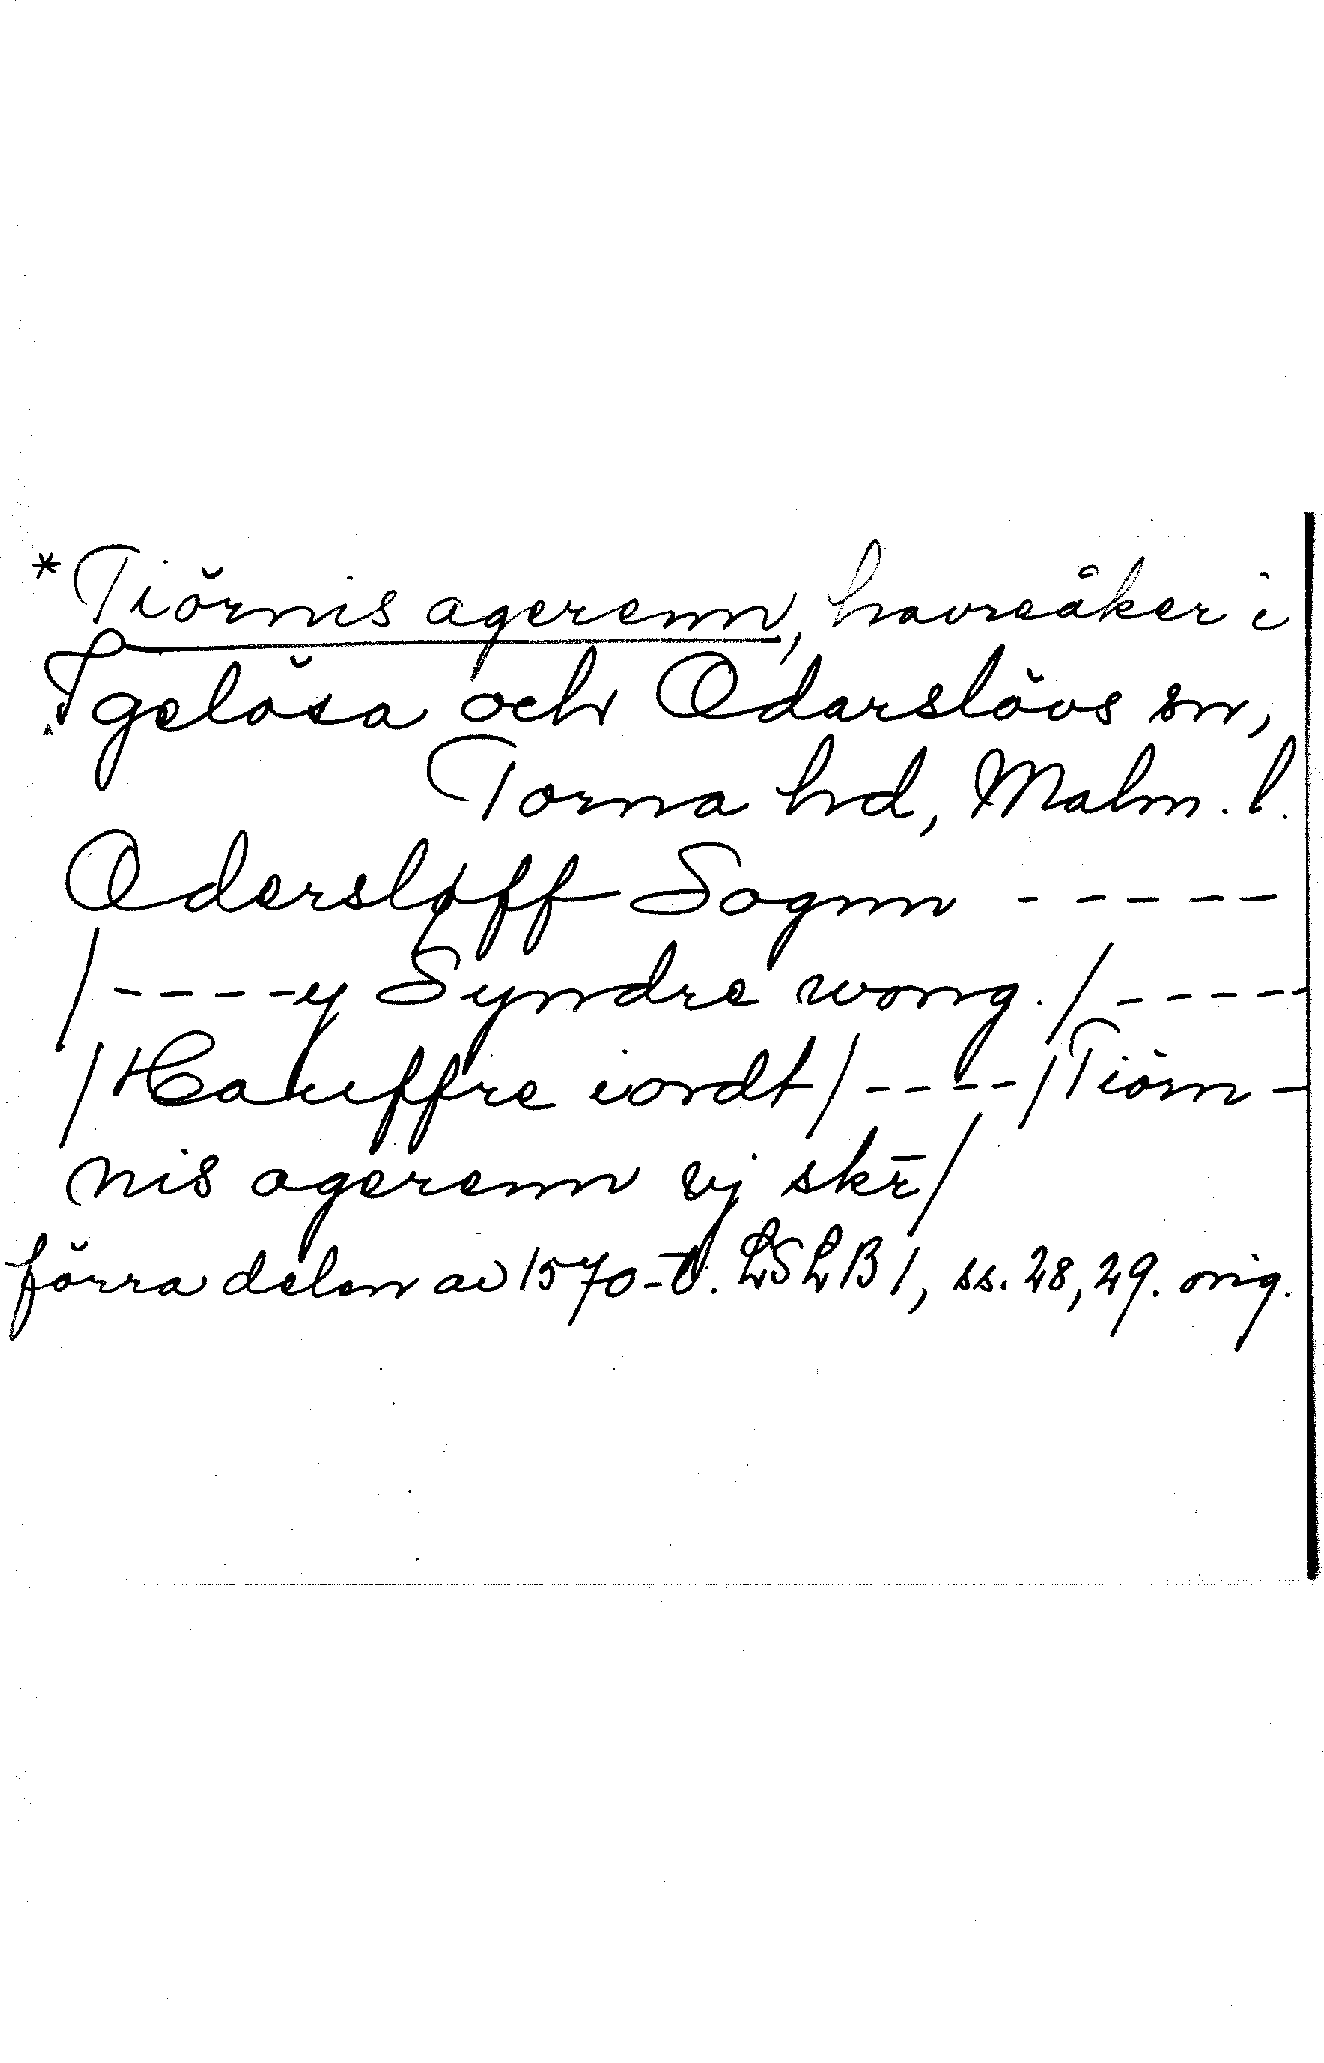 *Tiörnis agerenn, havreåker i
Igelösa och Odarslövs sn,
Torna hd, Malm. l.
Odersløff Sognn - - - - -
/- - - - y Syndre wong. / - - - - -
/Hauffre iordt/ - - - - /Tiörn -
nis agerenn vj skr̄/
förra delen av 1570-t. LSLB 1, ss. 28, 29. orig.